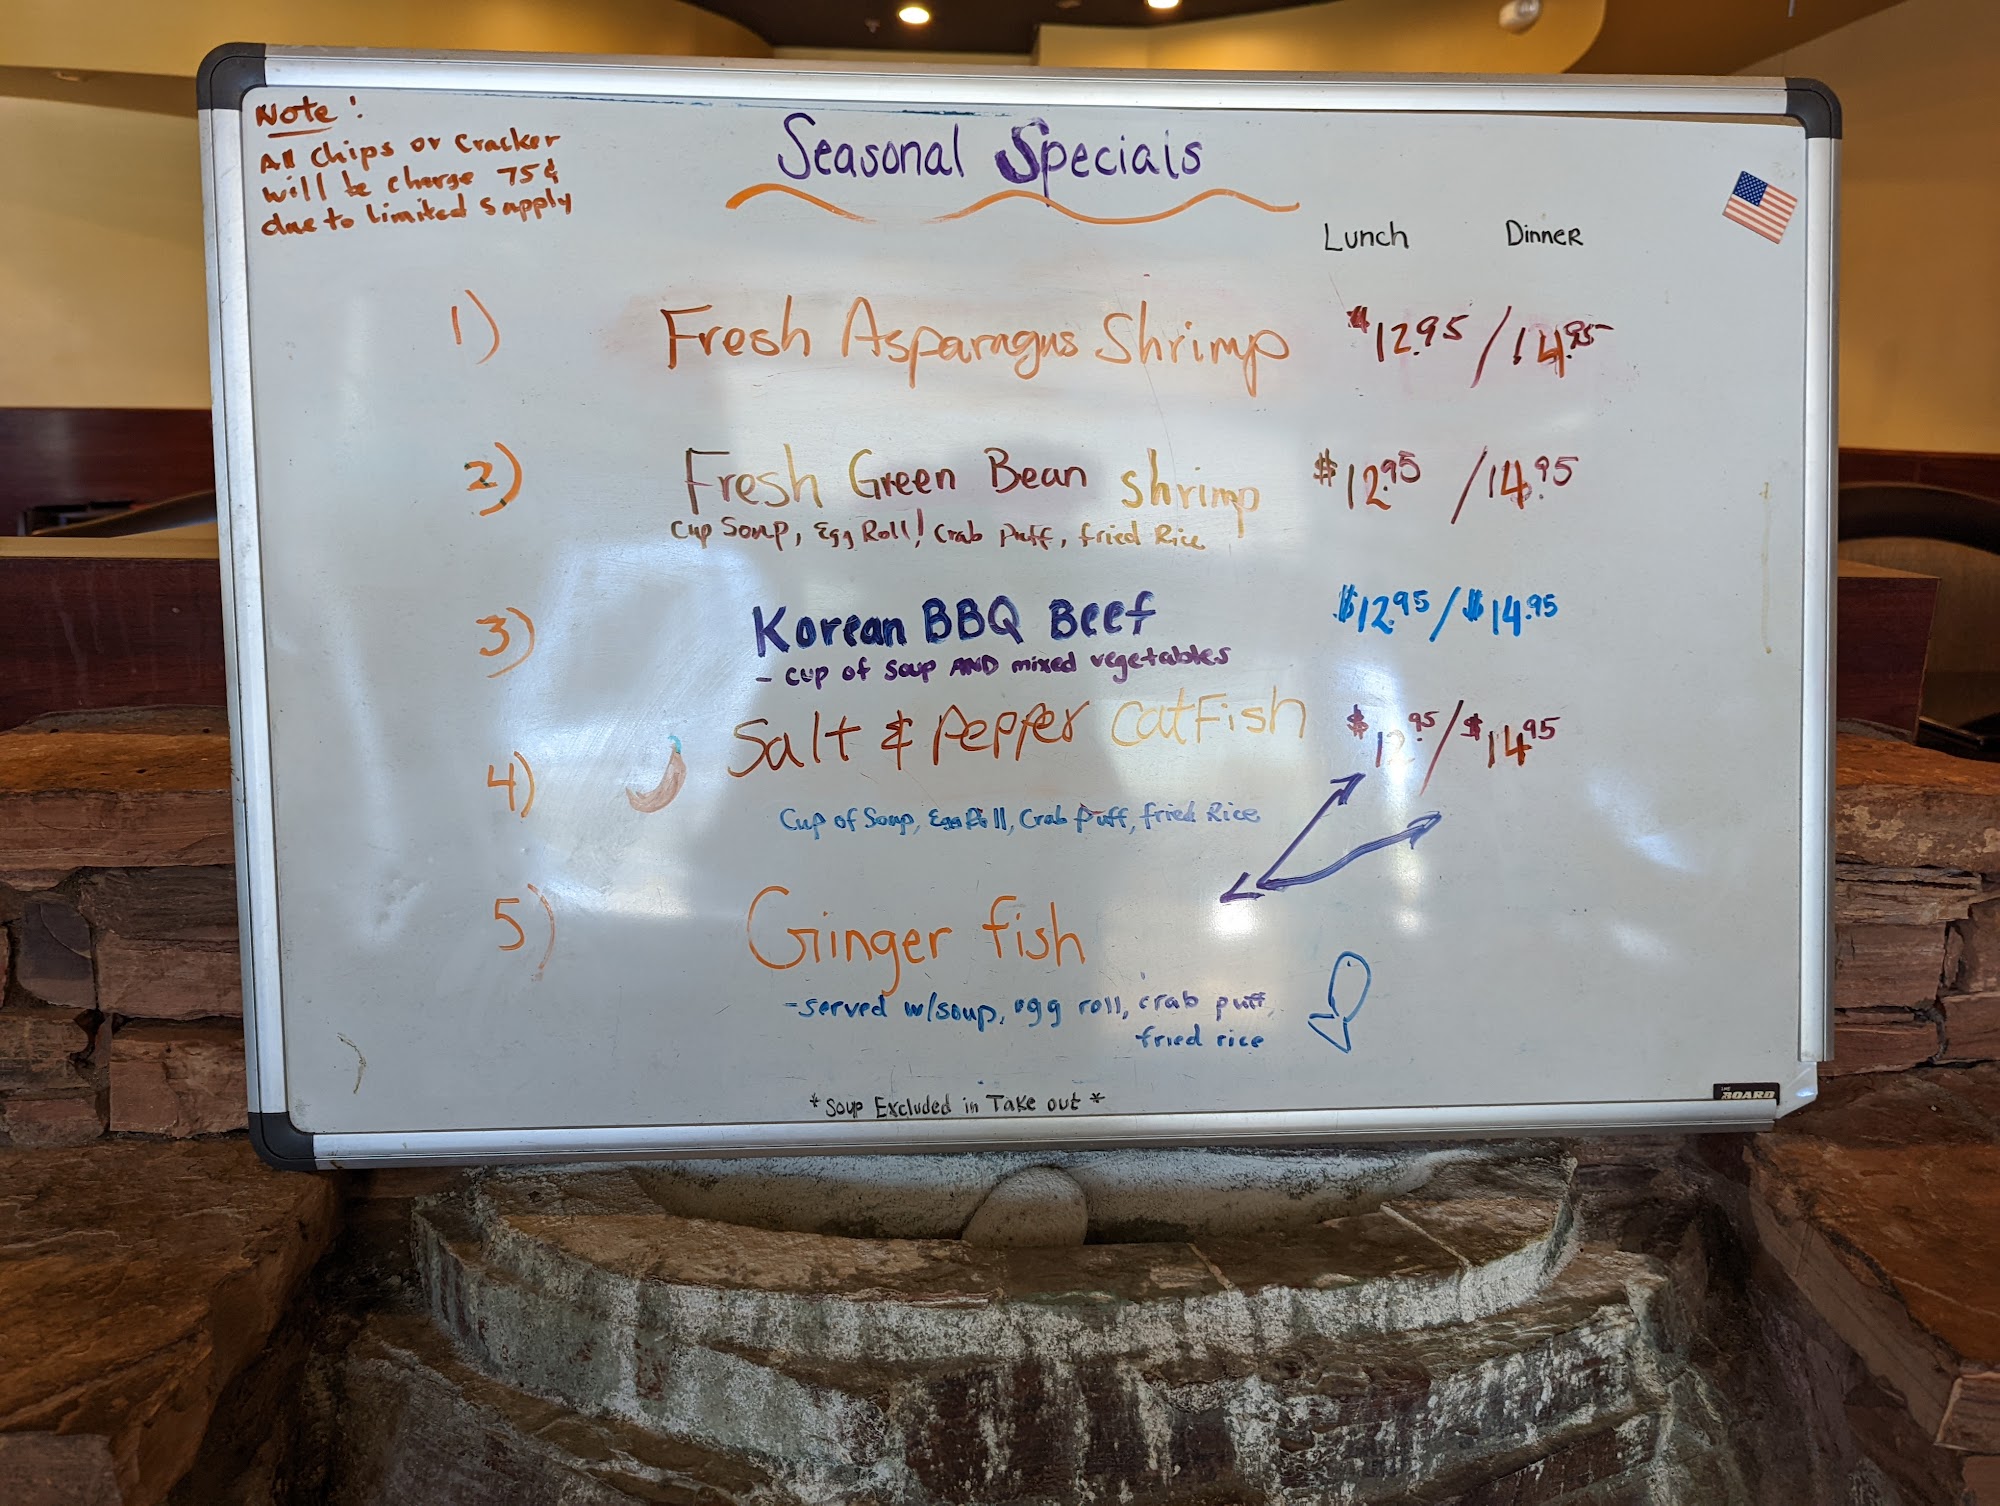 Note!
All Chips or Cracker
will be charge 75¢
due to limited supply
Seasonal Specials
Lunch Dinner
1) Fresh Asparagus Shrimp $12.95 / 14.95
2) Fresh Green Bean shrimp $12.95 / 14.95
Cup Soup, Egg Roll! Crab Puff, fried Rice
3) Korean BBQ Beef $12.95 / $14.95
- cup of soup AND mixed vegetables
4) Salt & pepper catfish $12.95 / $14.95
Cup of Soup, Egg Roll, Crab Puff, fried Rice
5) Ginger fish
- served w/soup, egg roll, crab puff,
fried rice
* Soup Excluded in Take out *
THE BOARD